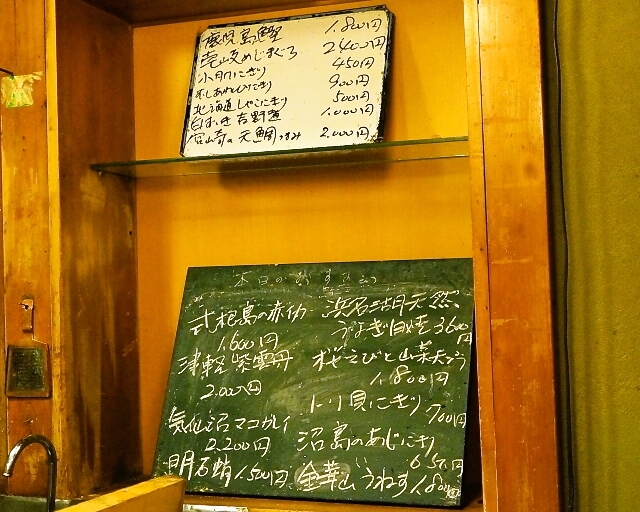 鹿児島鰹 1.800円
壱岐めじまぐろ 2400円
小肌にぎり 450円
蒸しあわびにぎり 900円
北海道しゃこにぎり 500円
白ばい貝 吉野煮 1.000円
宮崎の天鯛つまみ 2.000円
本日のおすすめ
式根島の赤イカ
1.600円
津軽 紫雲丹
2.000円
気仙沼マコガレイ
2.200円
明石蛸 1.500円
浜名湖天然
うなぎ白焼 3600円
桜えびと山菜天ぷら
1.800円
トリ貝にぎり 700円
沼島のあじにぎり
650円
金華山 うねす 1.800円